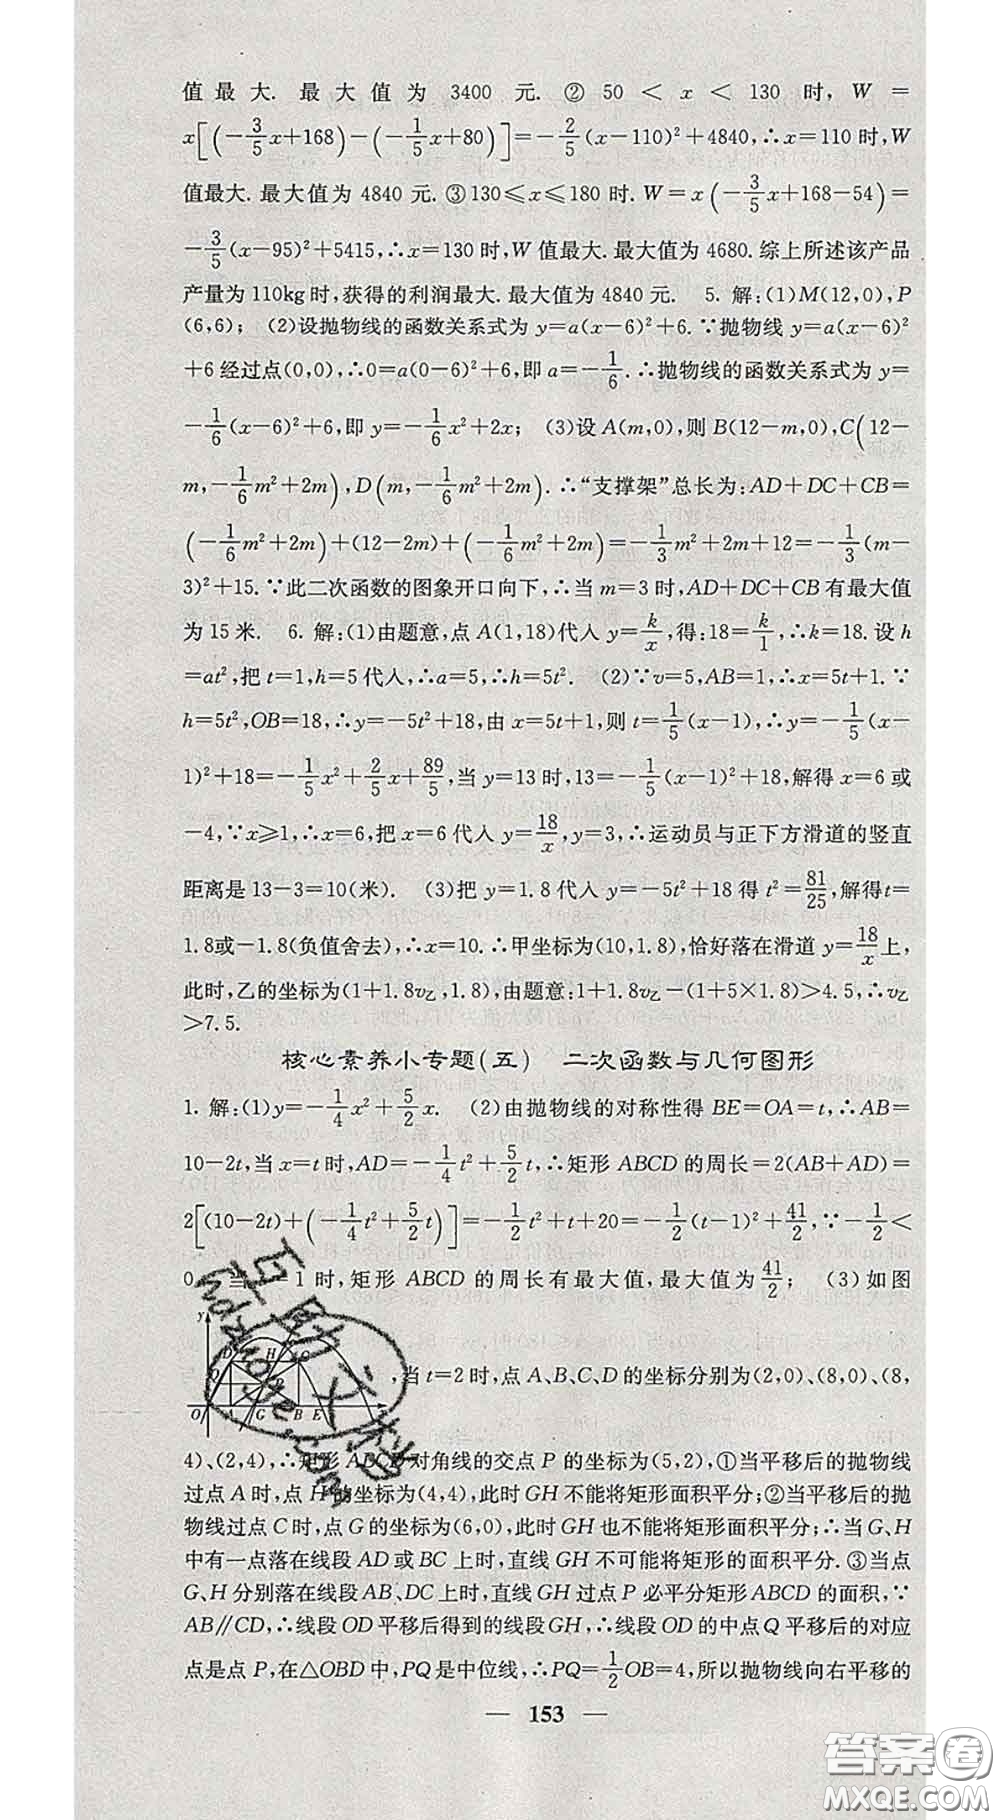 值最大. 最大值为 3400 元. ② 50 < x < 130 时, W =
x[(-3/5x+168)-(-1/5x+80)]=-2/5(x-110)²+4840,∴x=110 时,W
值最大. 最大值为 4840 元. ③130≤x≤180 时. W=x(-3/5x+168-54)=
-3/5(x-95)²+5415,∴x=130 时,W 值最大. 最大值为 4680. 综上所述该产品
产量为110kg时,获得的利润最大. 最大值为 4840 元. 5. 解:(1)M(12,0),P
(6,6); (2)设抛物线的函数关系式为 y=a(x-6)²+6.∵抛物线 y=a(x-6)²
+6 经过点(0,0),∴0=a(0-6)²+6,即 a=-1/6.∴抛物线的函数关系式为 y=
-1/6(x-6)²+6,即 y=-1/6x²+2x; (3)设 A(m,0),则 B(12-m,0),C(12-
m,-1/6m²+2m),D(m,-1/6m²+2m).∴“支撑架”总长为:AD+DC+CB=
(-1/6m²+2m)+(12-2m)+(-1/6m²+2m)=-1/3m²+2m+12=-1/3(m-
3)²+15.∵此二次函数的图象开口向下,∴当 m=3 时,AD+DC+CB 有最大值
为 15 米. 6. 解:(1)由题意,点 A(1,18)代入 y=k/x,得:18=k/1,∴k=18. 设 h
=at²,把 t=1,h=5 代入,∴a=5,∴h=5t². (2)∵v=5,AB=1,∴x=5t+1.∵
h=5t²,OB=18,∴y=-5t²+18,由 x=5t+1,则 t=1/5(x-1),∴y=-1/5(x-
1)²+18=-1/5x²+2/5x+89/5,当 y=13 时,13=-1/5(x-1)²+18,解得 x=6 或
-4,∵x≥1,∴x=6,把 x=6 代入 y=18/x,y=3,∴运动员与正下方滑道的竖直
距离是 13-3=10(米). (3)把 y=1.8 代入 y=-5t²+18 得 t²=81/25,解得t=
1.8或-1.8(负值舍去),∴x=10.∴甲坐标为(10,1.8),恰好落在滑道 y=18/x上,
此时,乙的坐标为(1+1.8v乙,1.8),由题意:1+1.8v乙-(1+5×1.8)>4.5,∴v乙
>7.5.
核心素养小专题(五) 二次函数与几何图形
1. 解:(1)y=-1/4x²+5/2x. (2)由抛物线的对称性得 BE=OA=t,∴AB=
10-2t,当 x=t 时,AD=-1/4t²+5/2t,∴矩形 ABCD 的周长=2(AB+AD)=
2[(10-2t)+(-1/4t²+5/2t)]=-1/2t²+t+20=-1/2(t-1)²+41/2,∵-1/2<
0 当 1 时,矩形 ABCD 的周长有最大值,最大值为41/2; (3)如图
y D H C Q P O A G B E x
,当 t=2 时,点 A、B、C、D 的坐标分别为(2,0)、(8,0)、(8,
4)、(2,4),∴矩形 ABCD 对角线的交点 P 的坐标为(5,2),①当平移后的抛物线
过点 A 时,点 H 的坐标为(4,4),此时 GH 不能将矩形面积平分;②当平移后的抛
物线过点 C 时,点 G 的坐标为(6,0),此时 GH 也不能将矩形面积平分;∴当 G、H
中有一点落在线段 AD 或 BC 上时,直线 GH 不可能将矩形的面积平分. ③当点
G、H 分别落在线段 AB、DC 上时,直线 GH 过点 P 必平分矩形 ABCD 的面积,∵
AB∥CD,∴线段 OD 平移后得到的线段 GH,∴线段 OD 的中点 Q 平移后的对应
点是点 P,在△OBD 中,PQ 是中位线,∴PQ=1/2OB=4,所以抛物线向右平移的
— 153 —
答案圈
MXQE.COM